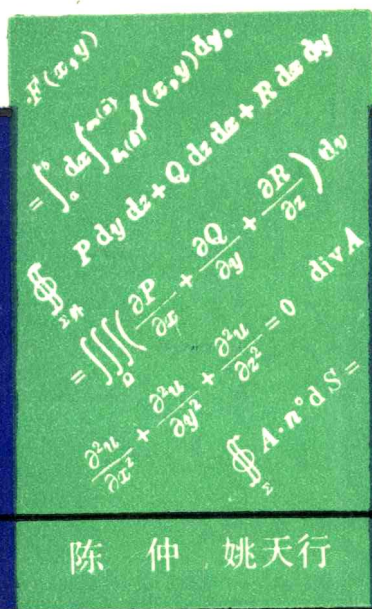 F(x,y)
= ∫ₐᵇ dx ∫ f(x,y)dy.
∯ P dy dz + Q dz dx + R dx dy
Σ外
= ∭_Ω (∂P/∂x + ∂Q/∂y + ∂R/∂z) dv
∂²u/∂x² + ∂²u/∂y² + ∂²u/∂z² = 0 div A
∯_Σ A·n° dS =
陈 仲 姚天行